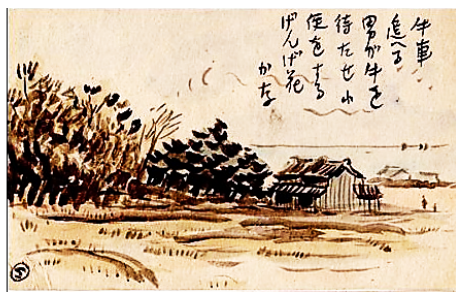 牛車
追へる
男が牛を
待たせ小
便をする
げんげ花
かな